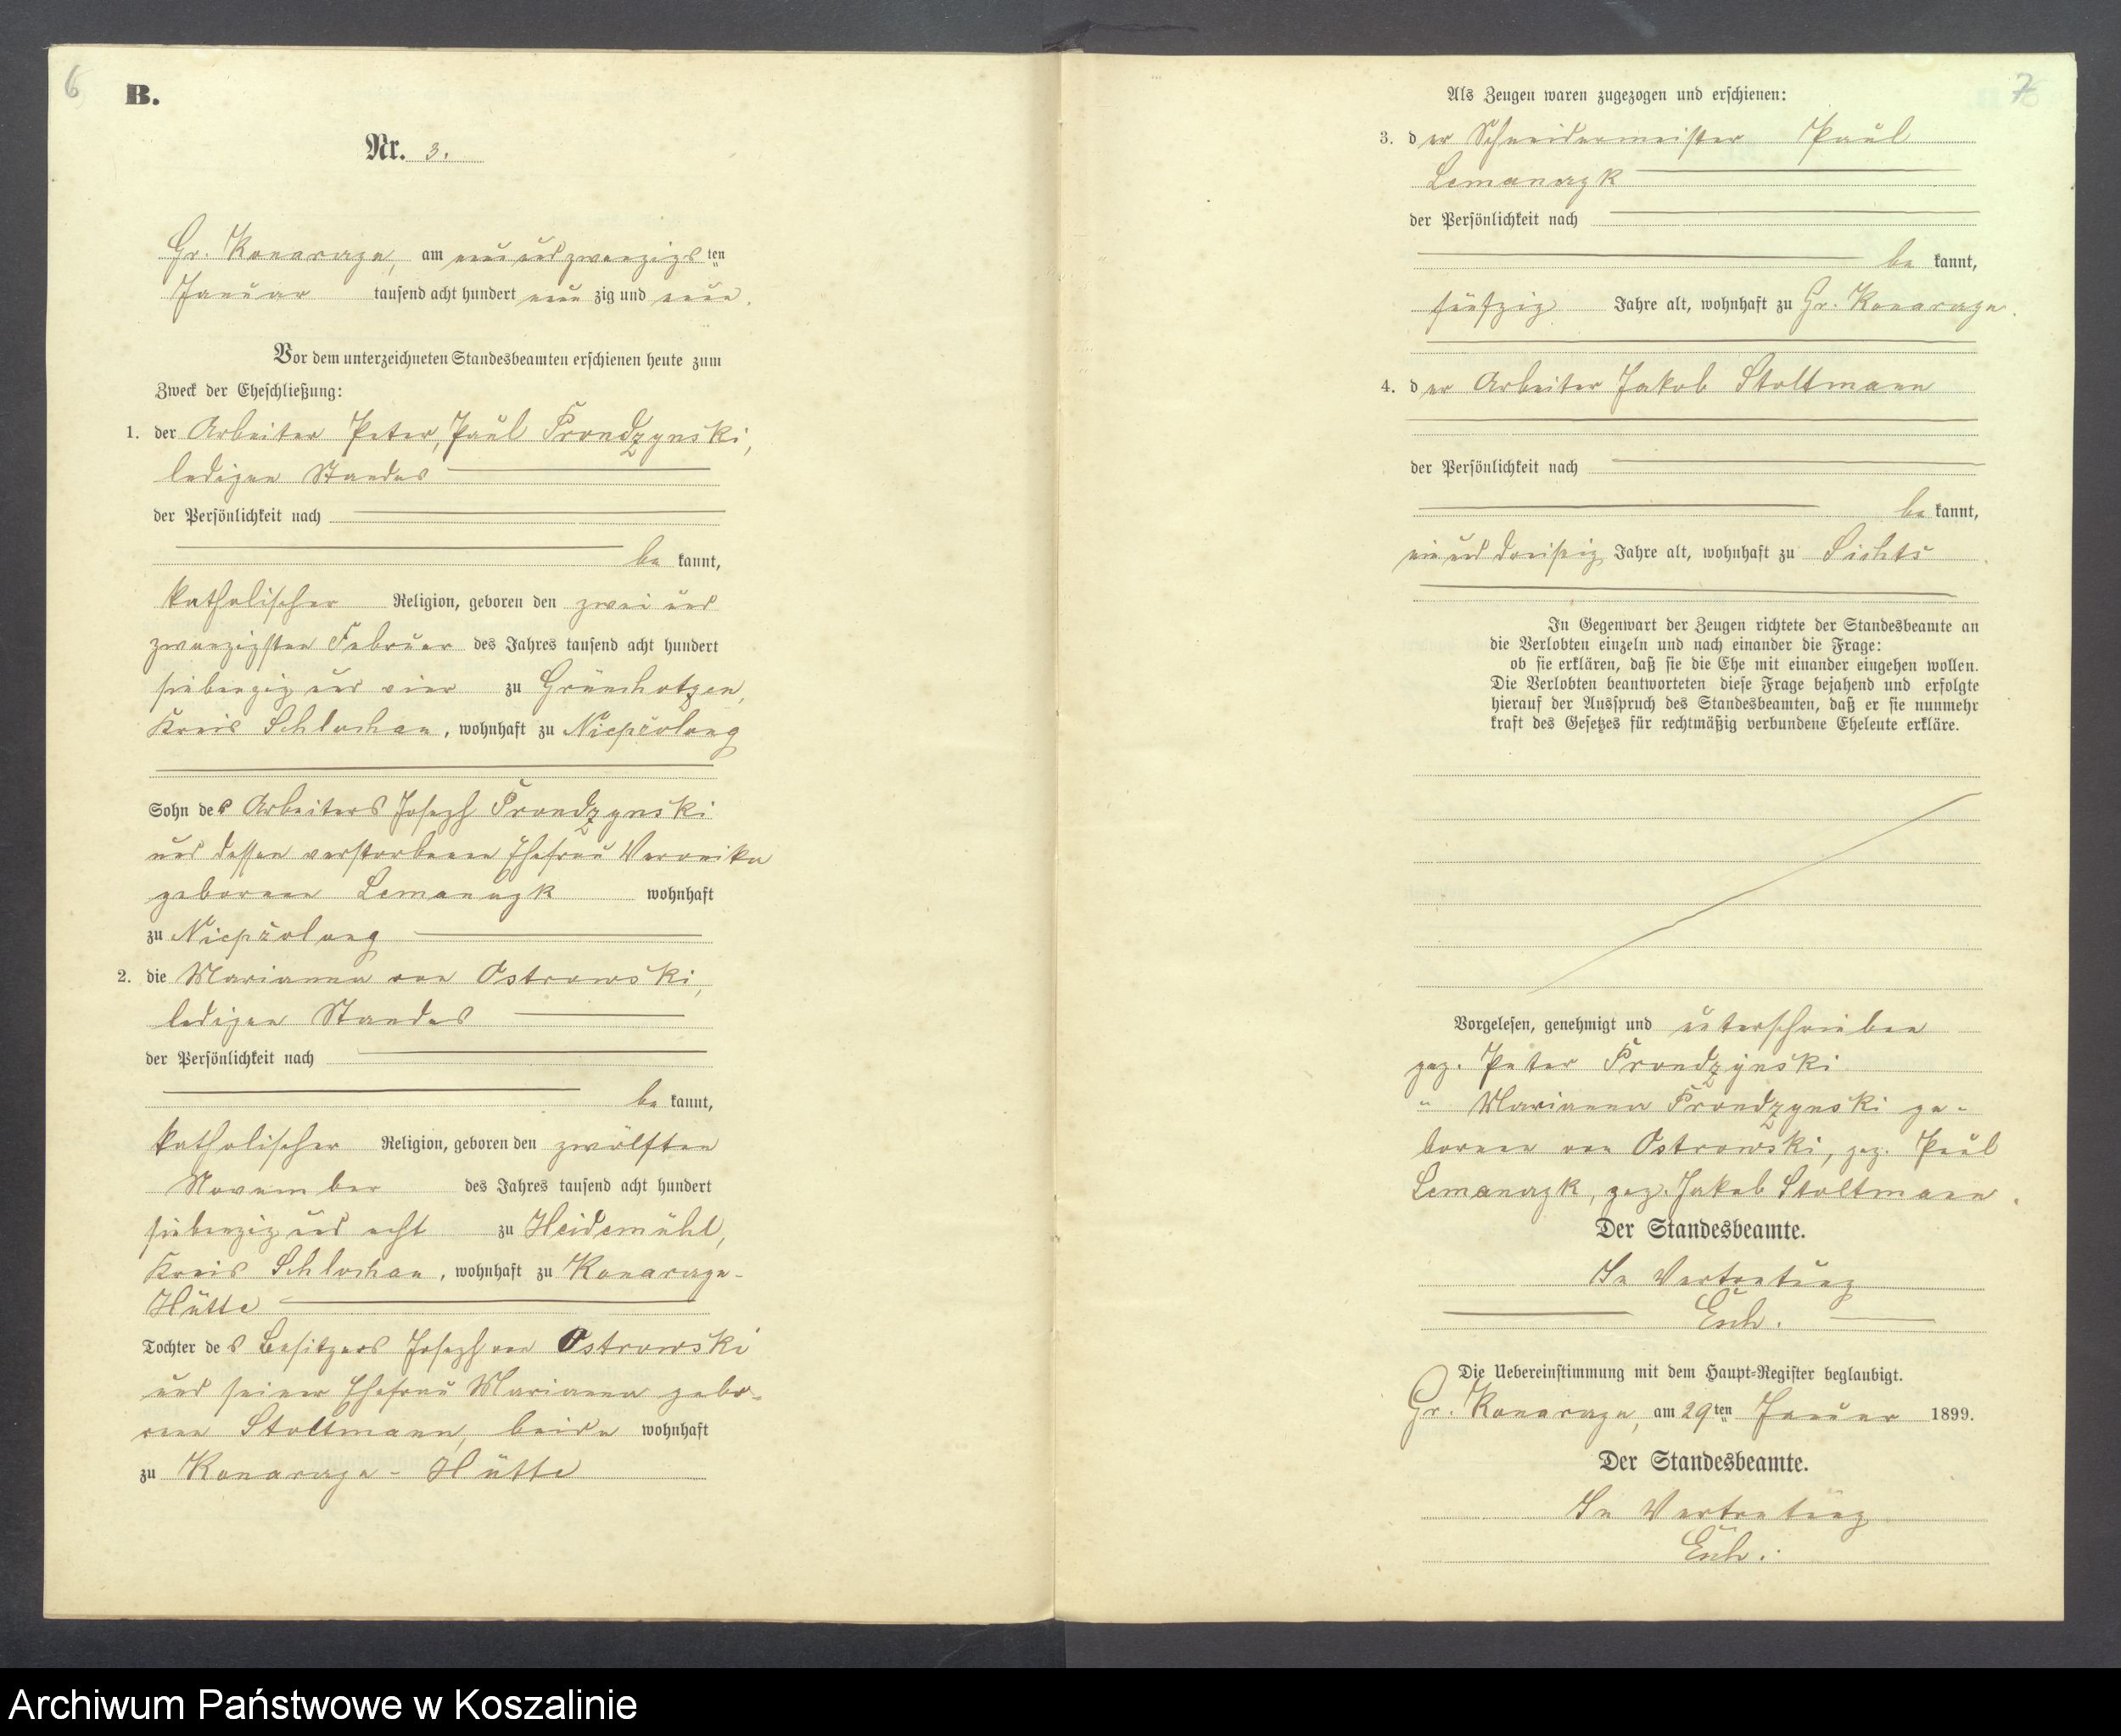 6
B.
Nr. 3.
Gr. Konarczyn, am neunundzwanzigs ten
Januar tausend acht hundert neun zig und neun.
Vor dem unterzeichneten Standesbeamten erschienen heute zum
Zweck der Eheschließung:
1. der Arbeiter Peter, Paul Prondzynski,
ledigen Standes
der Persönlichkeit nach
be kannt,
katholischer Religion, geboren den zwei und
zwanzigsten Februar des Jahres tausend acht hundert
siebenzig und vier zu Grünchotzen,
Kreis Schlochau, wohnhaft zu Niepszolong
Sohn des Arbeiters Joseph Prondzynski
und dessen verstorbenen Ehefrau Veronika
geborenen Lemanczyk wohnhaft
zu Niepszolong
2. die Marianna von Ostrowski,
ledigen Standes
der Persönlichkeit nach
be kannt,
katholischer Religion, geboren den zwölften
November des Jahres tausend acht hundert
siebenzig und acht zu Heidemühl,
Kreis Schlochau, wohnhaft zu Konarczyn-
Hütte
Tochter des Besitzers Joseph von Ostrowski
und seiner Ehefrau Marianna gebo-
renen Stoltmann, beide wohnhaft
zu Konarczyn - Hütte
7
Als Zeugen waren zugezogen und erschienen:
3. der Schneidermeister Paul
Lemanczyk
der Persönlichkeit nach
be kannt,
fünfzig Jahre alt, wohnhaft zu Gr. Konarczyn.
4. der Arbeiter Jakob Stoltmann
der Persönlichkeit nach
be kannt,
einunddreißig Jahre alt, wohnhaft zu Sichts
In Gegenwart der Zeugen richtete der Standesbeamte an
die Verlobten einzeln und nach einander die Frage:
ob sie erklären, daß sie die Ehe mit einander eingehen wollen.
Die Verlobten beantworteten diese Frage bejahend und erfolgte
hierauf der Ausspruch des Standesbeamten, daß er sie nunmehr
kraft des Gesetzes für rechtmäßig verbundene Eheleute erkläre.
Vorgelesen, genehmigt und unterschrieben
gez. Peter Prondzynski
" Marianna Prondzynski ge-
borenen von Ostrowski, gez. Paul
Lemanczyk, gez. Jakob Stoltmann.
Der Standesbeamte.
In Vertretung
Esch.
Die Uebereinstimmung mit dem Haupt-Register beglaubigt.
Gr. Konarczyn, am 29ten Januar 1899.
Der Standesbeamte.
In Vertretung
Esch.
Archiwum Państwowe w Koszalinie